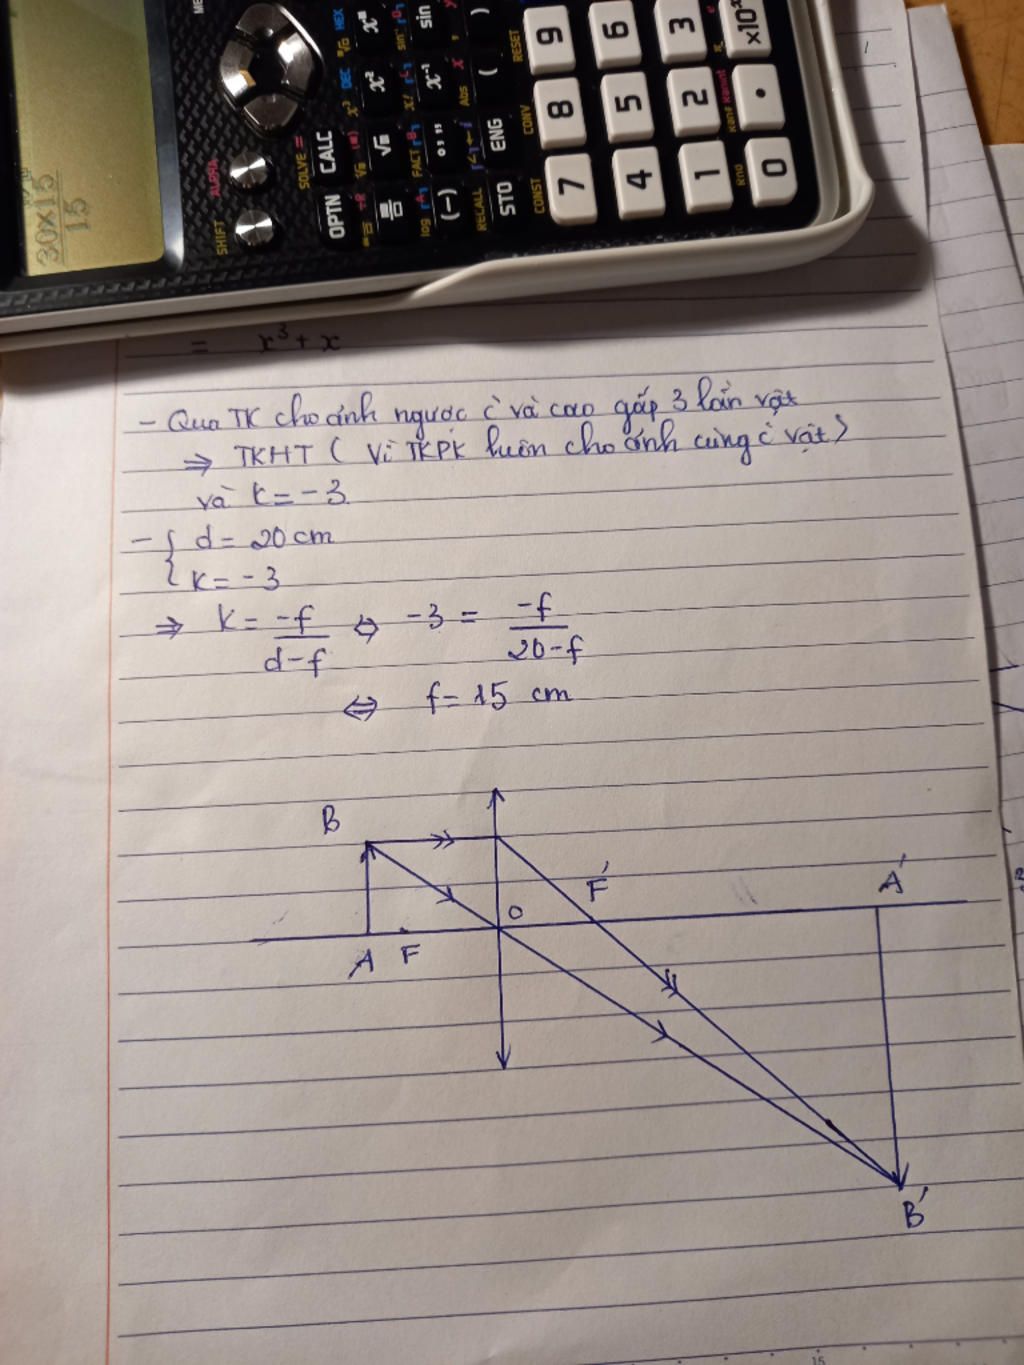 30×15
15
SHIFT
ALPHA
OPTN
CALC
SOLVE =
STO
ENG
RECALL
CONST
CONV
RESET
7
8
9
4
5
6
1
2
3
0
.
×10
= x³ + x
- Qua TK cho ảnh ngược c̀ và cao gấp 3 lần vật
⇒ TKHT ( Vì TKPK luôn cho ảnh cùng c̀ vật )
và k = -3
- { d = 20 cm
k = -3
⇒ k = -f / d-f ⇔ -3 = -f / 20-f
⇔ f = 15 cm
B
F'
A'
O
A
F
B'
15